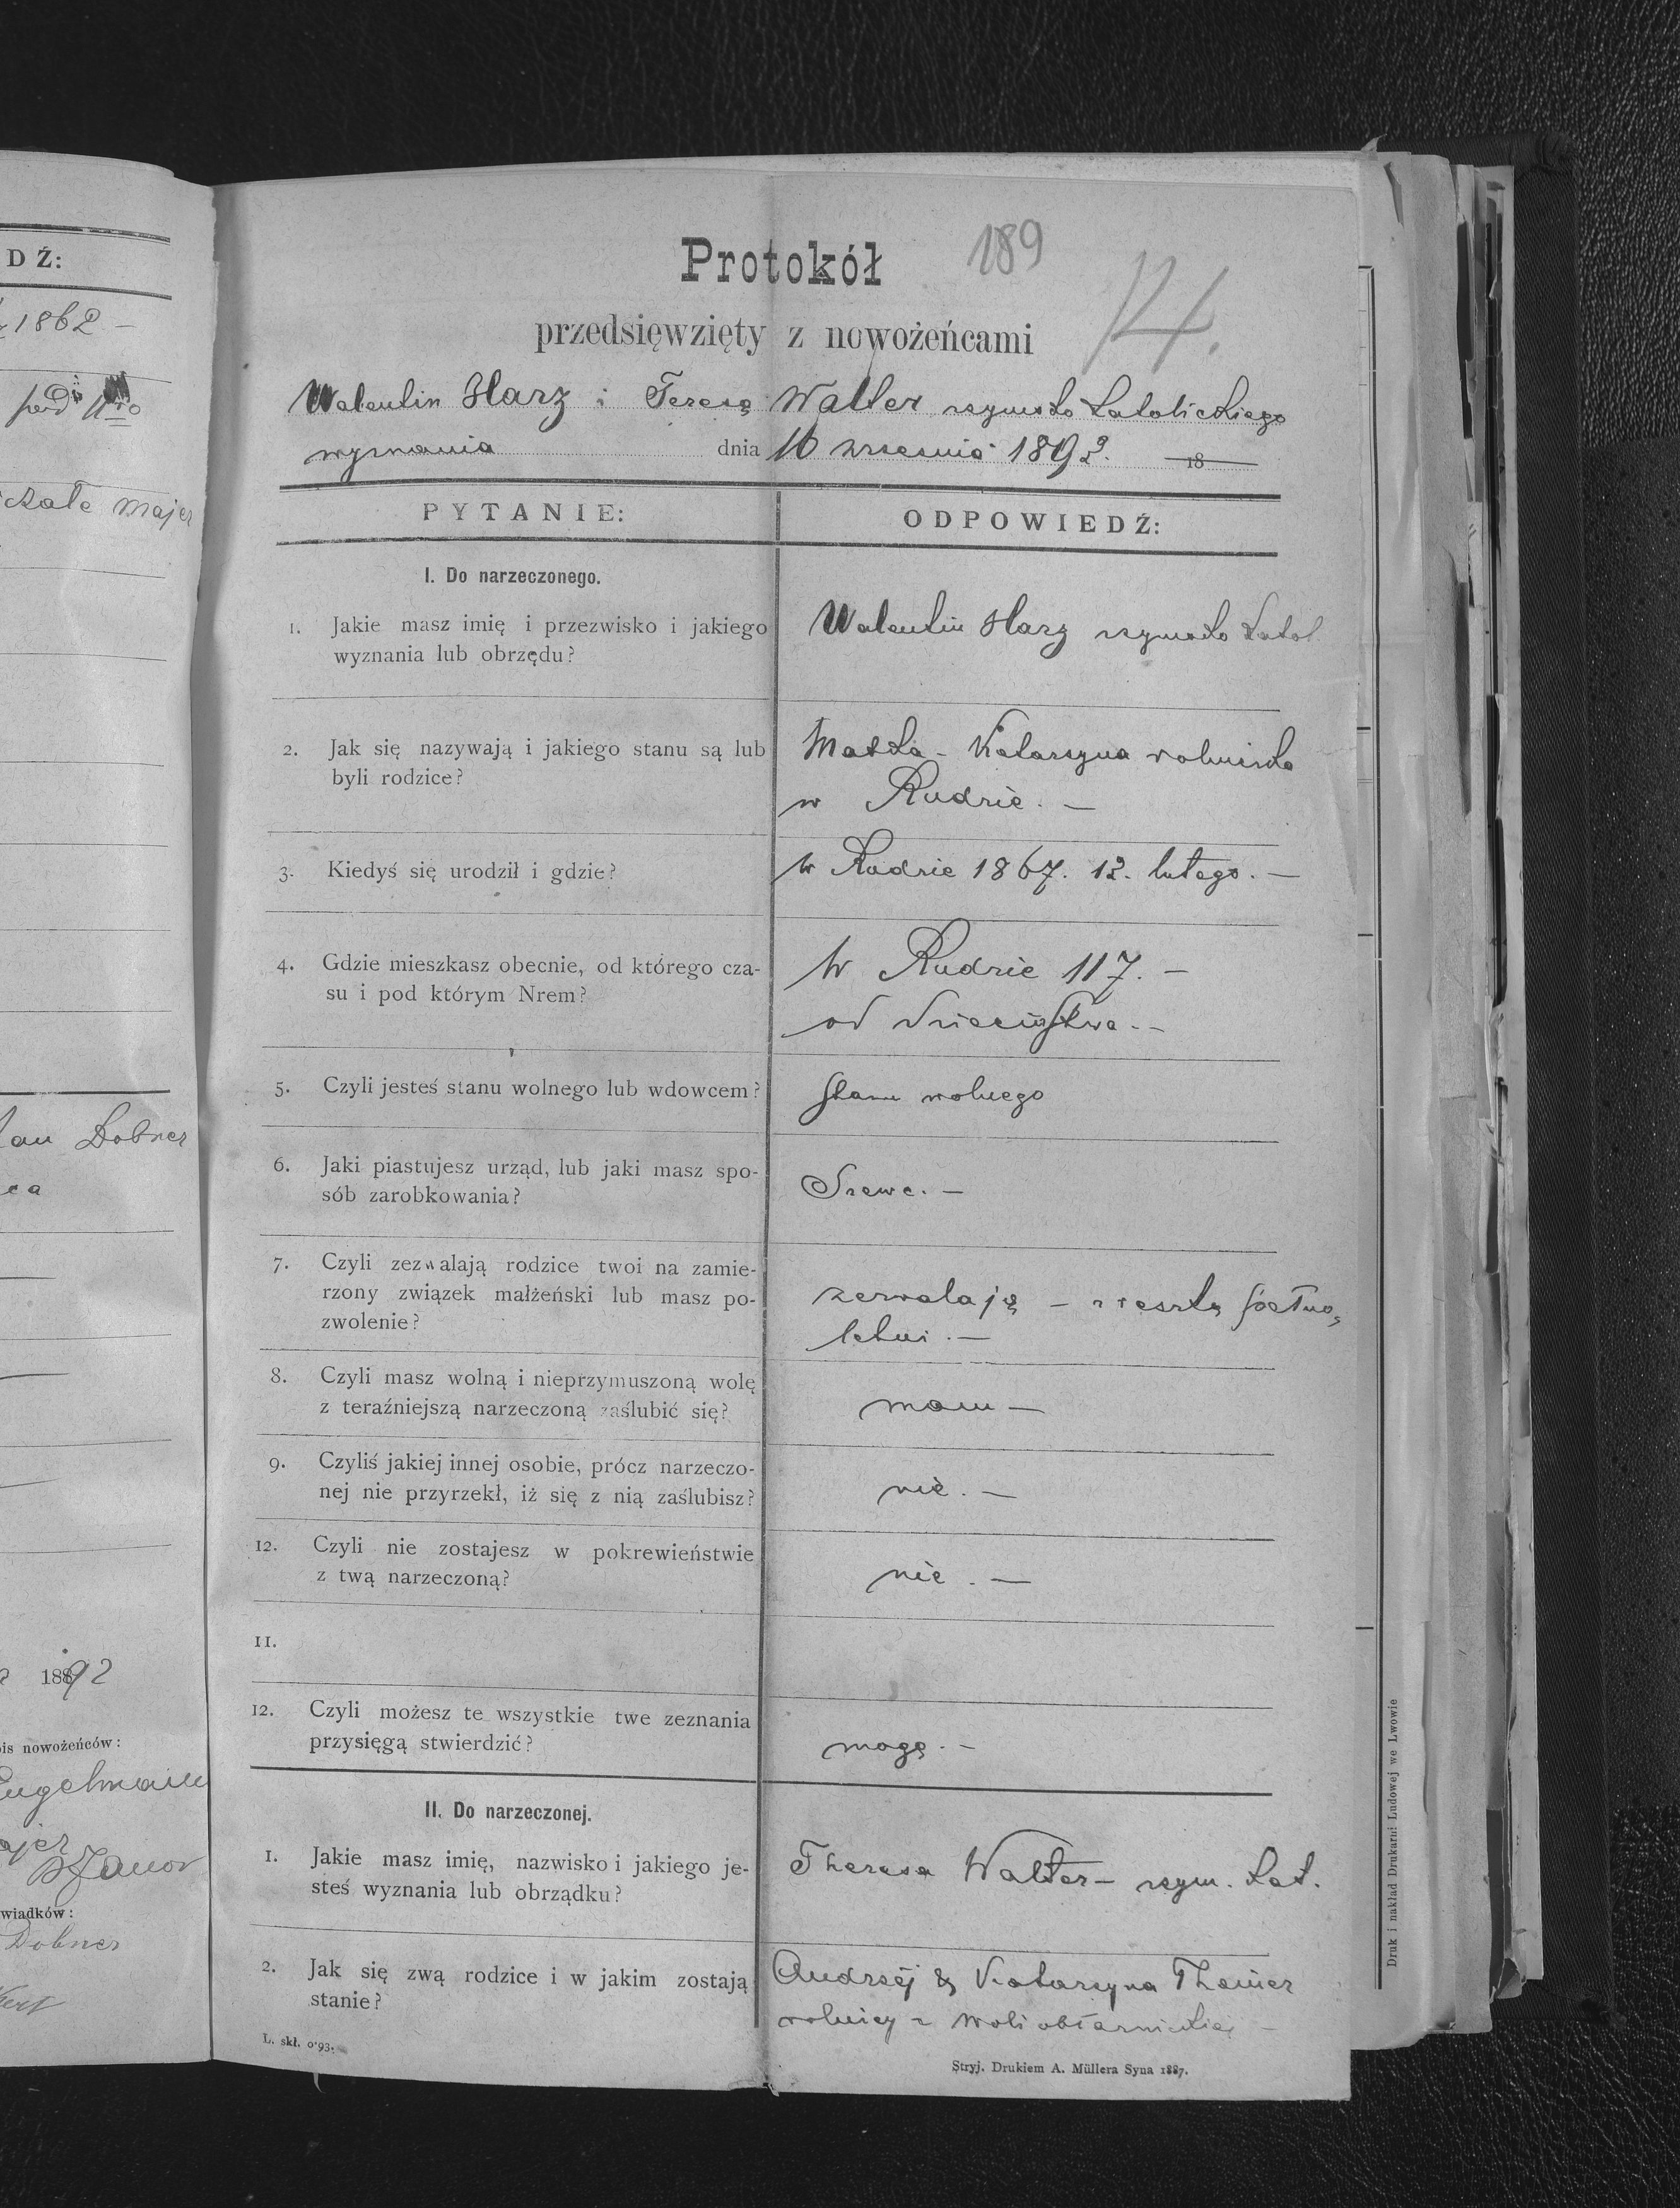 DŹ:
1862 –
Majer
Dobner
1892
nowożeńców:
Engelmann
Dobner
Protokół 189
14.
przedsięwzięty z nowożeńcami
Walentin Harz i Teresą Walter rzymsko katolickiego
wyznania dnia 16 września 1892. 18
PYTANIE: ODPOWIEDŹ:
I. Do narzeczonego.
1. Jakie masz imię i przezwisko i jakiego
wyznania lub obrzędu?
Walentin Harz rzymsko katol
2. Jak się nazywają i jakiego stanu są lub
byli rodzice?
Matka – Katarzyna rolniczka
w Rudzie. –
3. Kiedyś się urodził i gdzie?
w Rudzie 1867. 12. lutego. –
4. Gdzie mieszkasz obecnie, od którego cza-
su i pod którym Nrem?
W Rudzie 117. –
od dzieciństwa. –
5. Czyli jesteś stanu wolnego lub wdowcem?
stanu wolnego
6. Jaki piastujesz urząd, lub jaki masz spo-
sób zarobkowania?
Szewc. –
7. Czyli zezwalają rodzice twoi na zamie-
rzony związek małżeński lub masz po-
zwolenie?
zezwalają – zresztą pełno-
letni. –
8. Czyli masz wolną i nieprzymuszoną wolę
z teraźniejszą narzeczoną zaślubić się?
mam –
9. Czyliś jakiej innej osobie, prócz narzeczo-
nej nie przyrzekł, iż się z nią zaślubisz?
nie. –
12. Czyli nie zostajesz w pokrewieństwie
z twą narzeczoną?
nie. –
11.
12. Czyli możesz te wszystkie twe zeznania
przysięgą stwierdzić?
mogę. –
II. Do narzeczonej.
1. Jakie masz imię, nazwisko i jakiego je-
steś wyznania lub obrządku?
Theresa Walter – rzym. kat.
2. Jak się zwą rodzice i w jakim zostają
stanie?
Andrzej & Katarzyna
rolnicy z Woli
L. skł. 0·93.
Stryj. Drukiem A. Müllera Syna 1887.
Druk i nakład Drukarni Ludowej we Lwowie